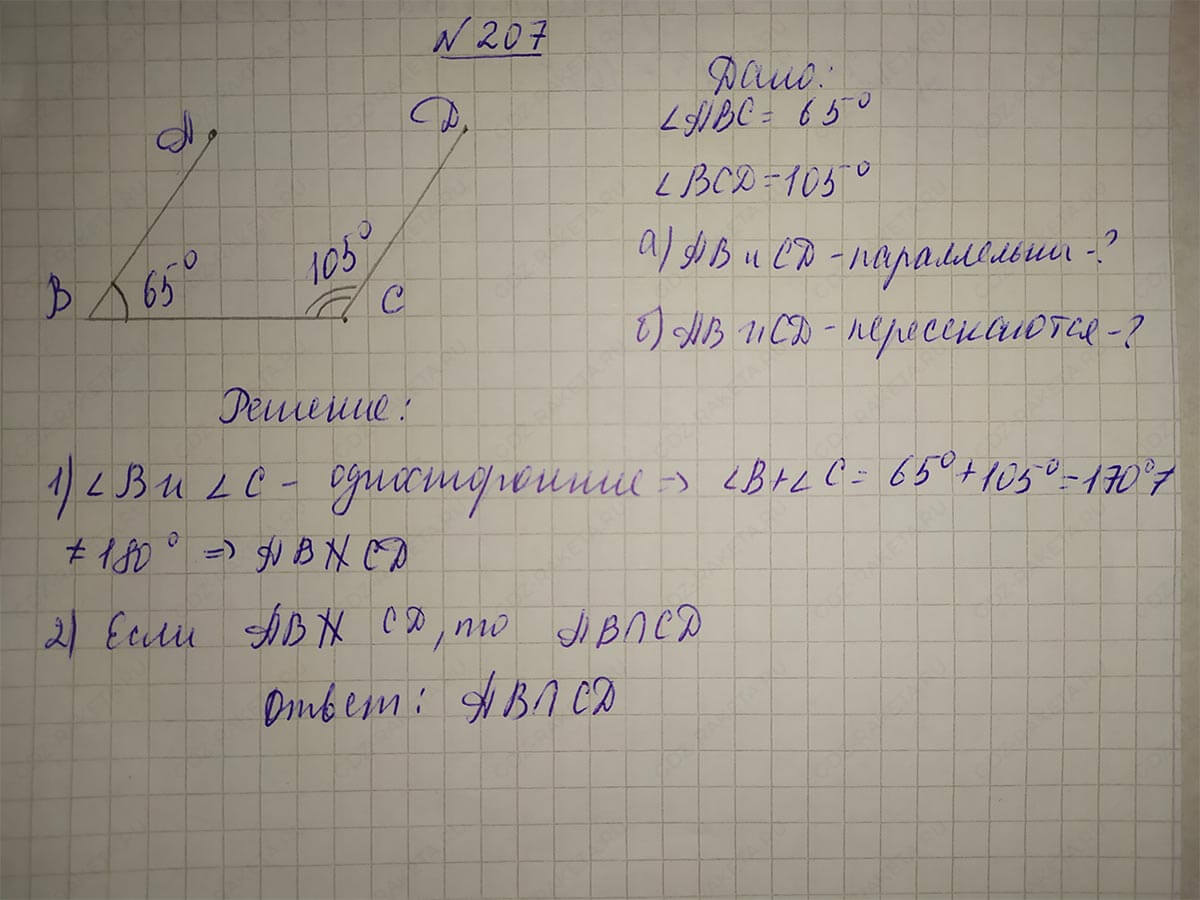 N 207
A
D
B
65°
105°
C
Дано:
∠ABC = 65°
∠BCD = 105°
а) AB и CD - параллельны - ?
б) AB и CD - пересекаются - ?
Решение:
1) ∠B и ∠C - односторонние => ∠B+∠C = 65°+105° = 170° ≠
≠ 180° => AB ∦ CD
2) Если AB ∦ CD, то AB ∩ CD
Ответ: AB ∩ CD